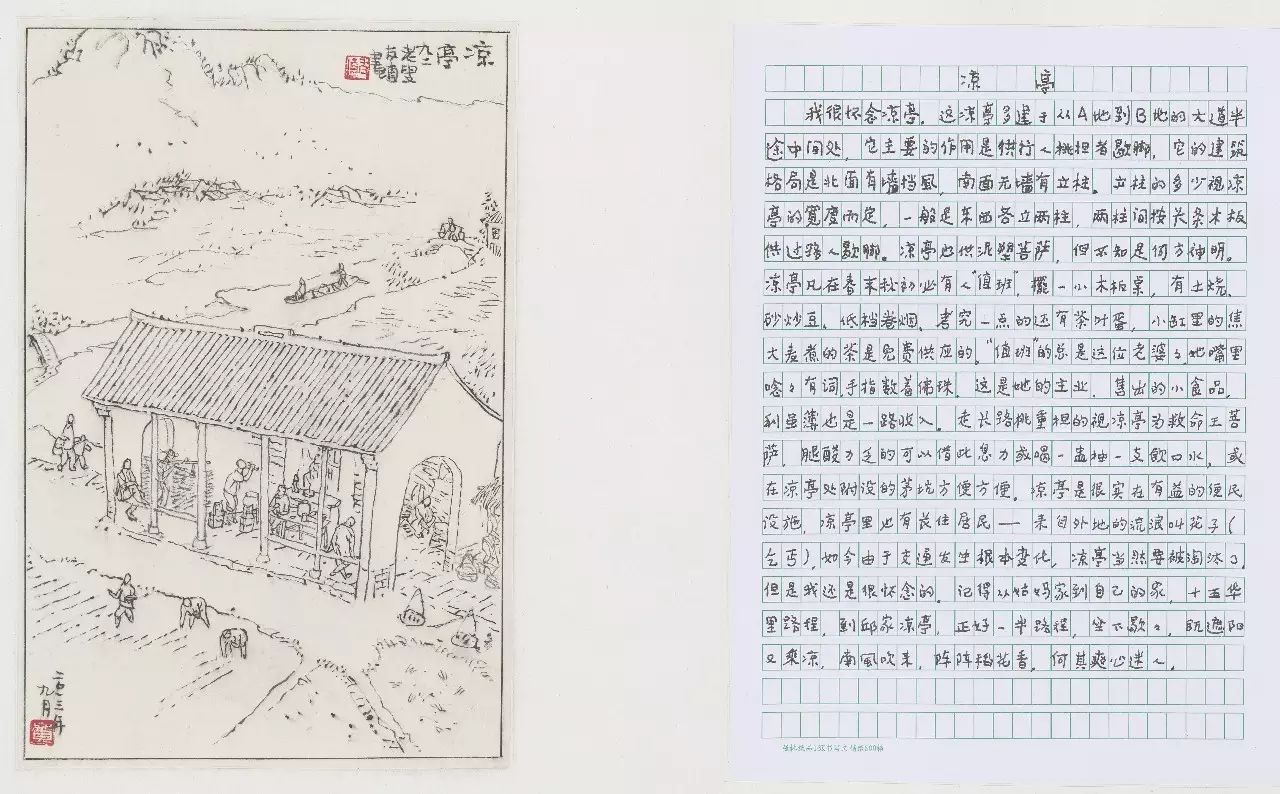 凉亭
九二
老叟
友讀
書
二〇一三年
九月
凉亭
我很怀念凉亭。这凉亭多建于从A地到B地的大道半
途中间处，它主要的作用是供行人挑担者歇脚，它的建筑
格局是北面有墙挡風，南面无墙有立柱。立柱的多少視凉
亭的寬度而定，一般是东西各立两柱，两柱间按长条木板
供过路人歇脚。凉亭也供泥塑菩萨，但不知是何方神明。
凉亭凡在春末秋初必有人“值班”，擺一小木板桌，有土烧、
砂炒豆、低档卷烟、考究一点的还有茶叶蛋，小缸里的焦
大麦煮的茶是免费供应的。“值班”的总是这位老婆々她嘴里
唸々有词，手指数着佛珠，这是她的主业，售出的小食品，
利虽薄也是一路收入。走长路挑重担的視凉亭为救命王菩
萨，腿酸力乏的可以借此息力或喝一盅抽一支飲口水，或
在凉亭处附设的茅坑方便方便。凉亭是很实在有益的便民
设施，凉亭里也有长住居民——来自外地的流浪叫花子（
乞丐），如今由于交通发生根本变化，凉亭当然要被淘汰了，
但是我还是很怀念的，记得从姑妈家到自己的家，十五华
里路程，到邱家凉亭，正好一半路程，坐下歇々，既遮阳
又乘凉，南風吹来，阵阵稻花香，何其爽心迷人。